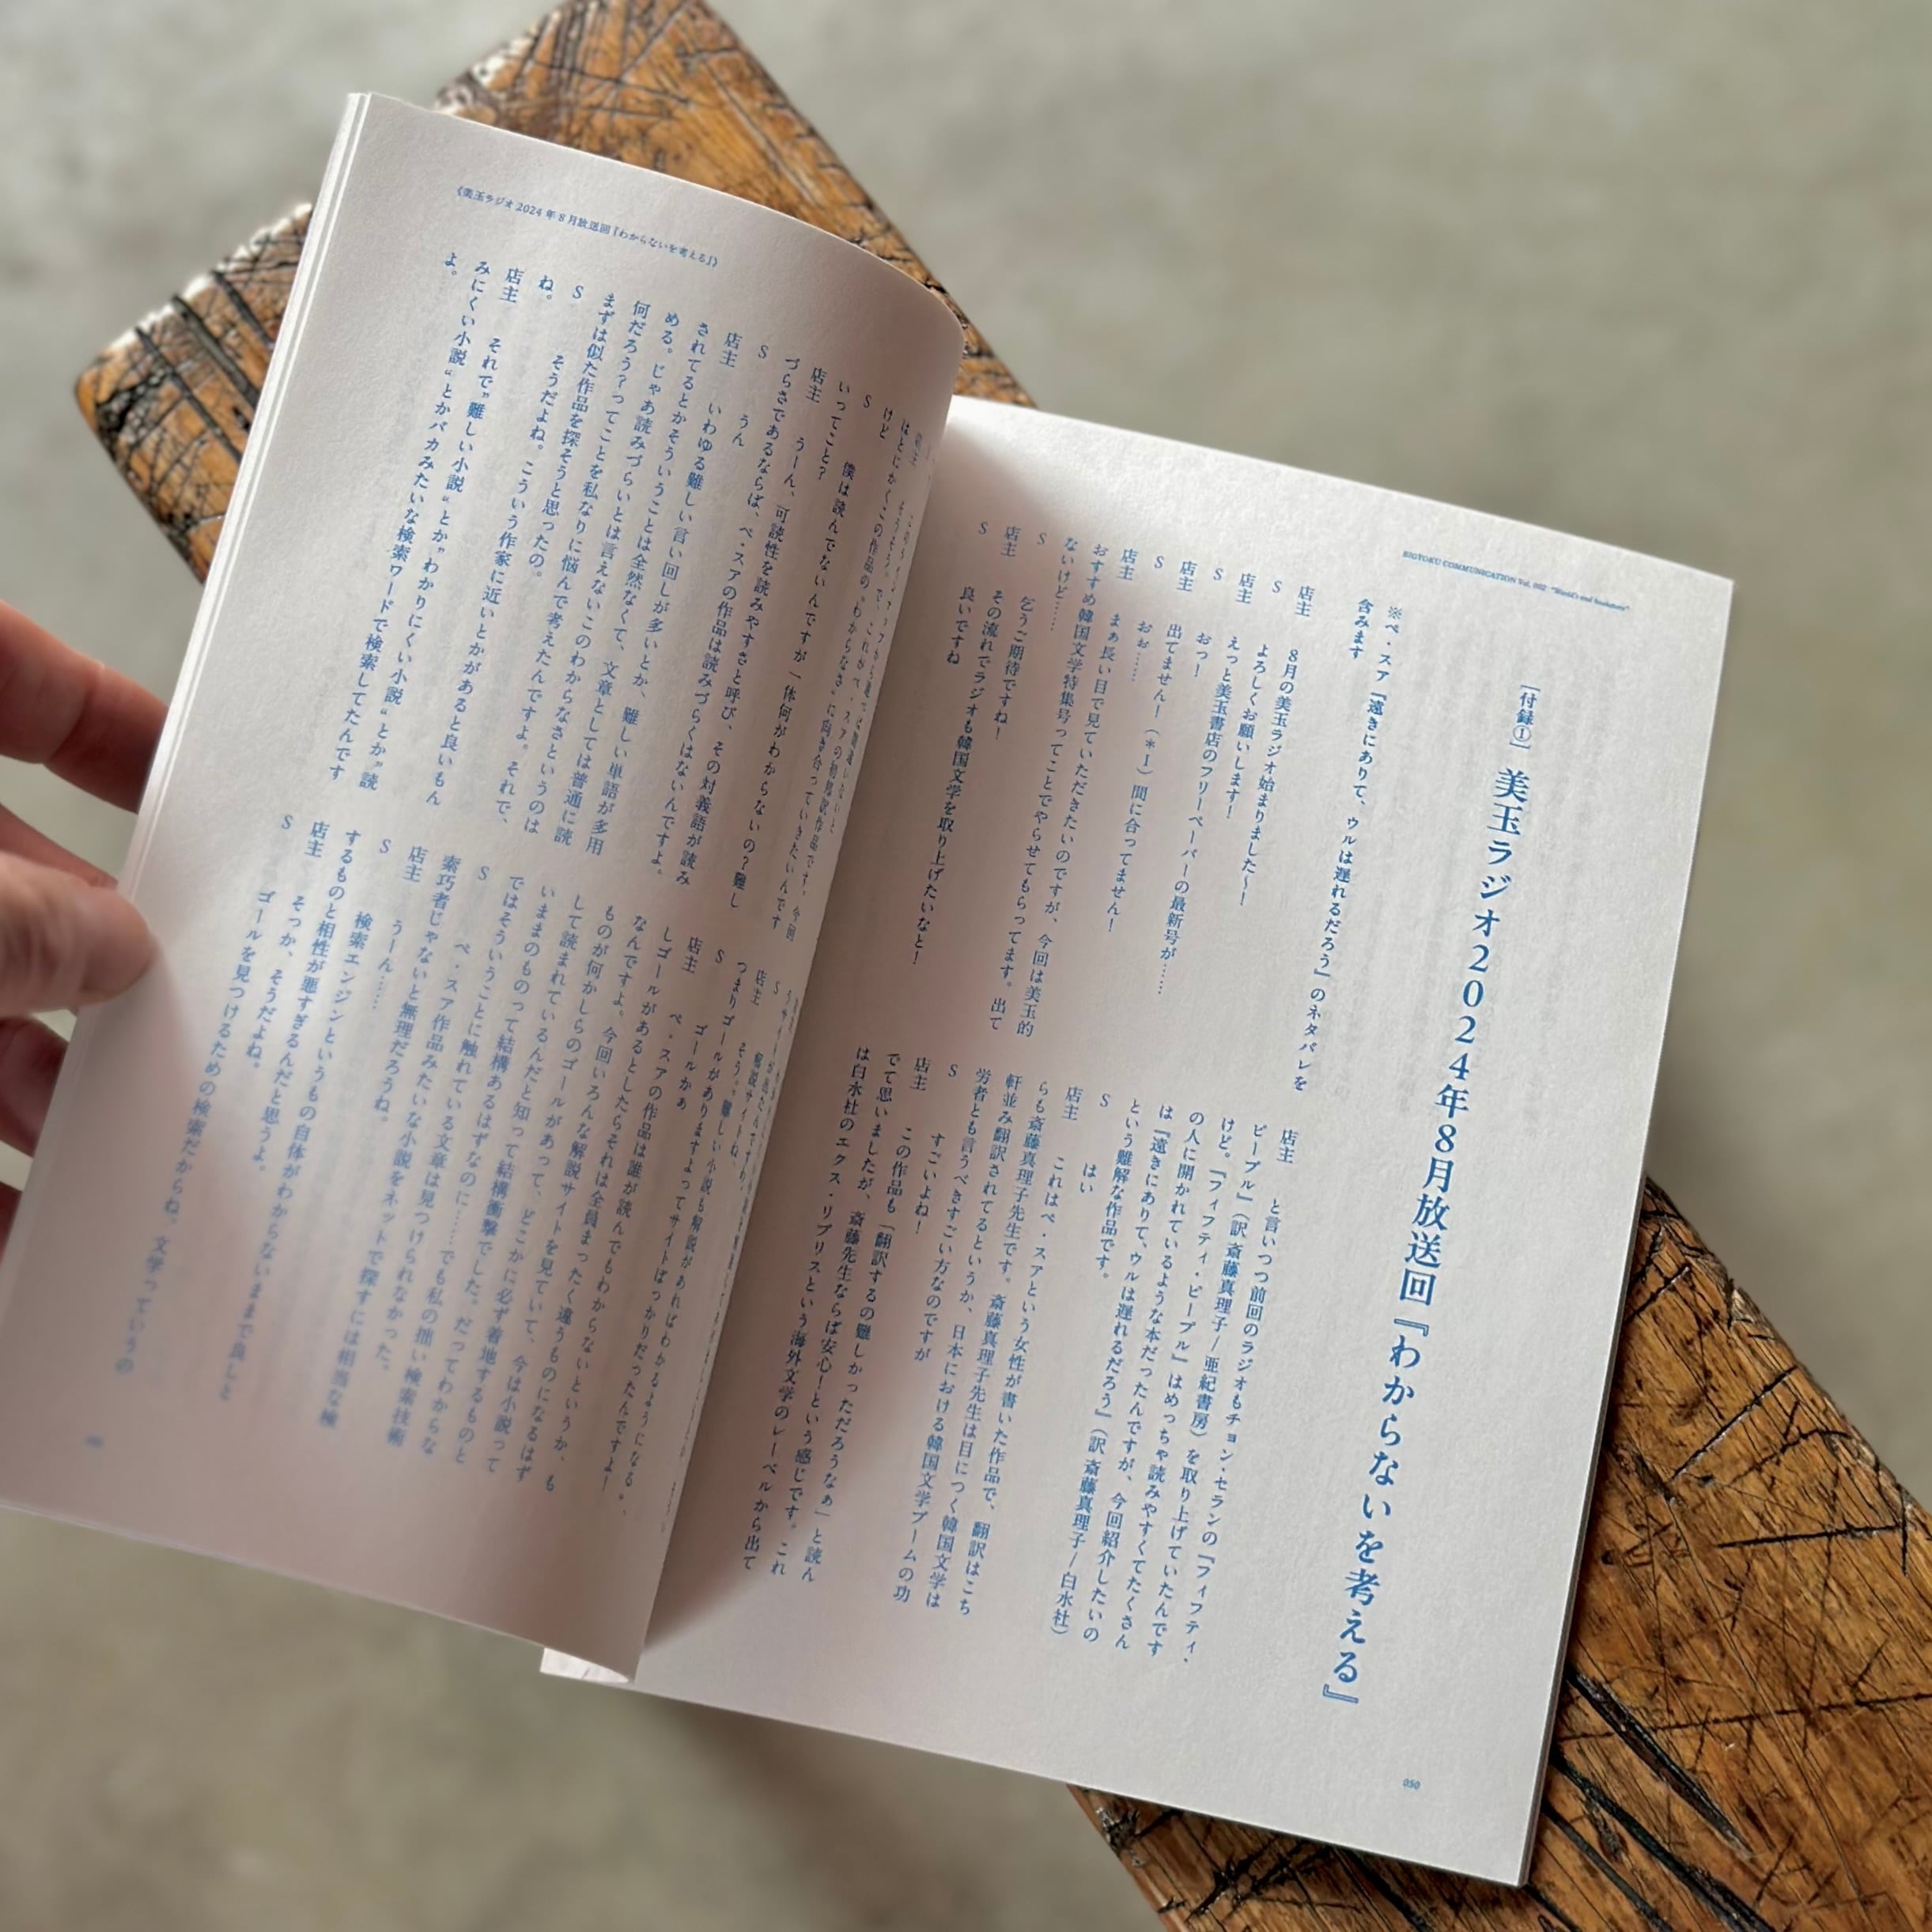 BIGTOKU COMMUNICATION Vol. 002 "World's end bookstore"
[付録①] 美玉ラジオ2024年8月放送回『わからないを考える』
※ペ・スア『遠きにありて、ウルは遅れるだろう』のネタバレを
含みます
店主 8月の美玉ラジオ始まりました〜!
S よろしくお願いします!
店主 えっと美玉書店のフリーペーパーの最新号が……
S おっ!
店主 出てません!(*1)間に合ってません!
S おお……
店主 まぁ長い目で見ていただきたいのですが、今回は美玉的
おすすめ韓国文学特集号ってことでやらせてもらってます。出て
ないけど……
S 乞うご期待ですね!
店主 その流れでラジオも韓国文学を取り上げたいなと!
S 良いですね
店主 と言いつつ前回のラジオもチョン・セランの『フィフティ・
ピープル』(訳 斎藤真理子/亜紀書房)を取り上げていたんです
けど。『フィフティ・ピープル』はめっちゃ読みやすくてたくさん
の人に開かれているような本だったんですが、今回紹介したいの
は『遠きにありて、ウルは遅れるだろう』(訳 斎藤真理子/白水社)
という難解な作品です。
S はい
店主 これはペ・スアという女性が書いた作品で、翻訳はこち
らも斎藤真理子先生です。斎藤真理子先生は目につく韓国文学は
軒並み翻訳されてるというか、日本における韓国文学ブームの功
労者とも言うべきすごい方なのですが
S すごいよね!
店主 この作品も「翻訳するの難しかっただろうなぁ」と読ん
でて思いましたが、斎藤先生ならば安心!という感じです。これ
は白水社のエクス・リブリスという海外文学のレーベルから出て
050
《美玉ラジオ 2024年8月放送回『わからないを考える』》
はとにかくこの作品の“わからなさ”に向き合っていきたいんです
けど
S 僕は読んでないんですが一体何がわからないの?難し
いってこと?
店主 うーん、可読性を読みやすさと呼び、その対義語が読み
づらさであるならば、ペ・スアの作品は読みづらくはないんですよ。
S うん
店主 いわゆる難しい言い回しが多いとか、難しい単語が多用
されてるとかそういうことは全然なくて、文章としては普通に読
める。じゃあ読みづらいとは言えないこのわからなさというのは
何だろう?ってことを私なりに悩んで考えたんですよ。それで、
まずは似た作品を探そうと思ったの。
S そうだよね。こういう作家に近いとかがあると良いもん
ね。
店主 それで”難しい小説“とか”わかりにくい小説“とか”読
みにくい小説“とかバカみたいな検索ワードで検索してたんです
よ。
S
店主 そう。難しい小説も解説があればわかるようになる。
つまりゴールがありますよってサイトばっかりだったんですよ!
S ゴールかぁ
店主 ペ・スアの作品は誰が読んでもわからないというか、も
しゴールがあるとしたらそれは全員まったく違うものになるはず
なんですよ。今回いろんな解説サイトを見ていて、今は小説って
ものが何かしらのゴールがあって、どこかに必ず着地するものと
して読まれているんだと知って結構衝撃でした。だってわからな
いままのものって結構あるはずなのに……でも私の拙い検索技術
ではそういうことに触れている文章は見つけられなかった。
S ペ・スア作品みたいな小説をネットで探すには相当な検
索巧者じゃないと無理だろうね。
店主 うーん……
S 検索エンジンというもの自体がわからないままで良しと
するものと相性が悪すぎるんだと思うよ。
店主 そっか、そうだよね。
S ゴールを見つけるための検索だからね。文学っていうの